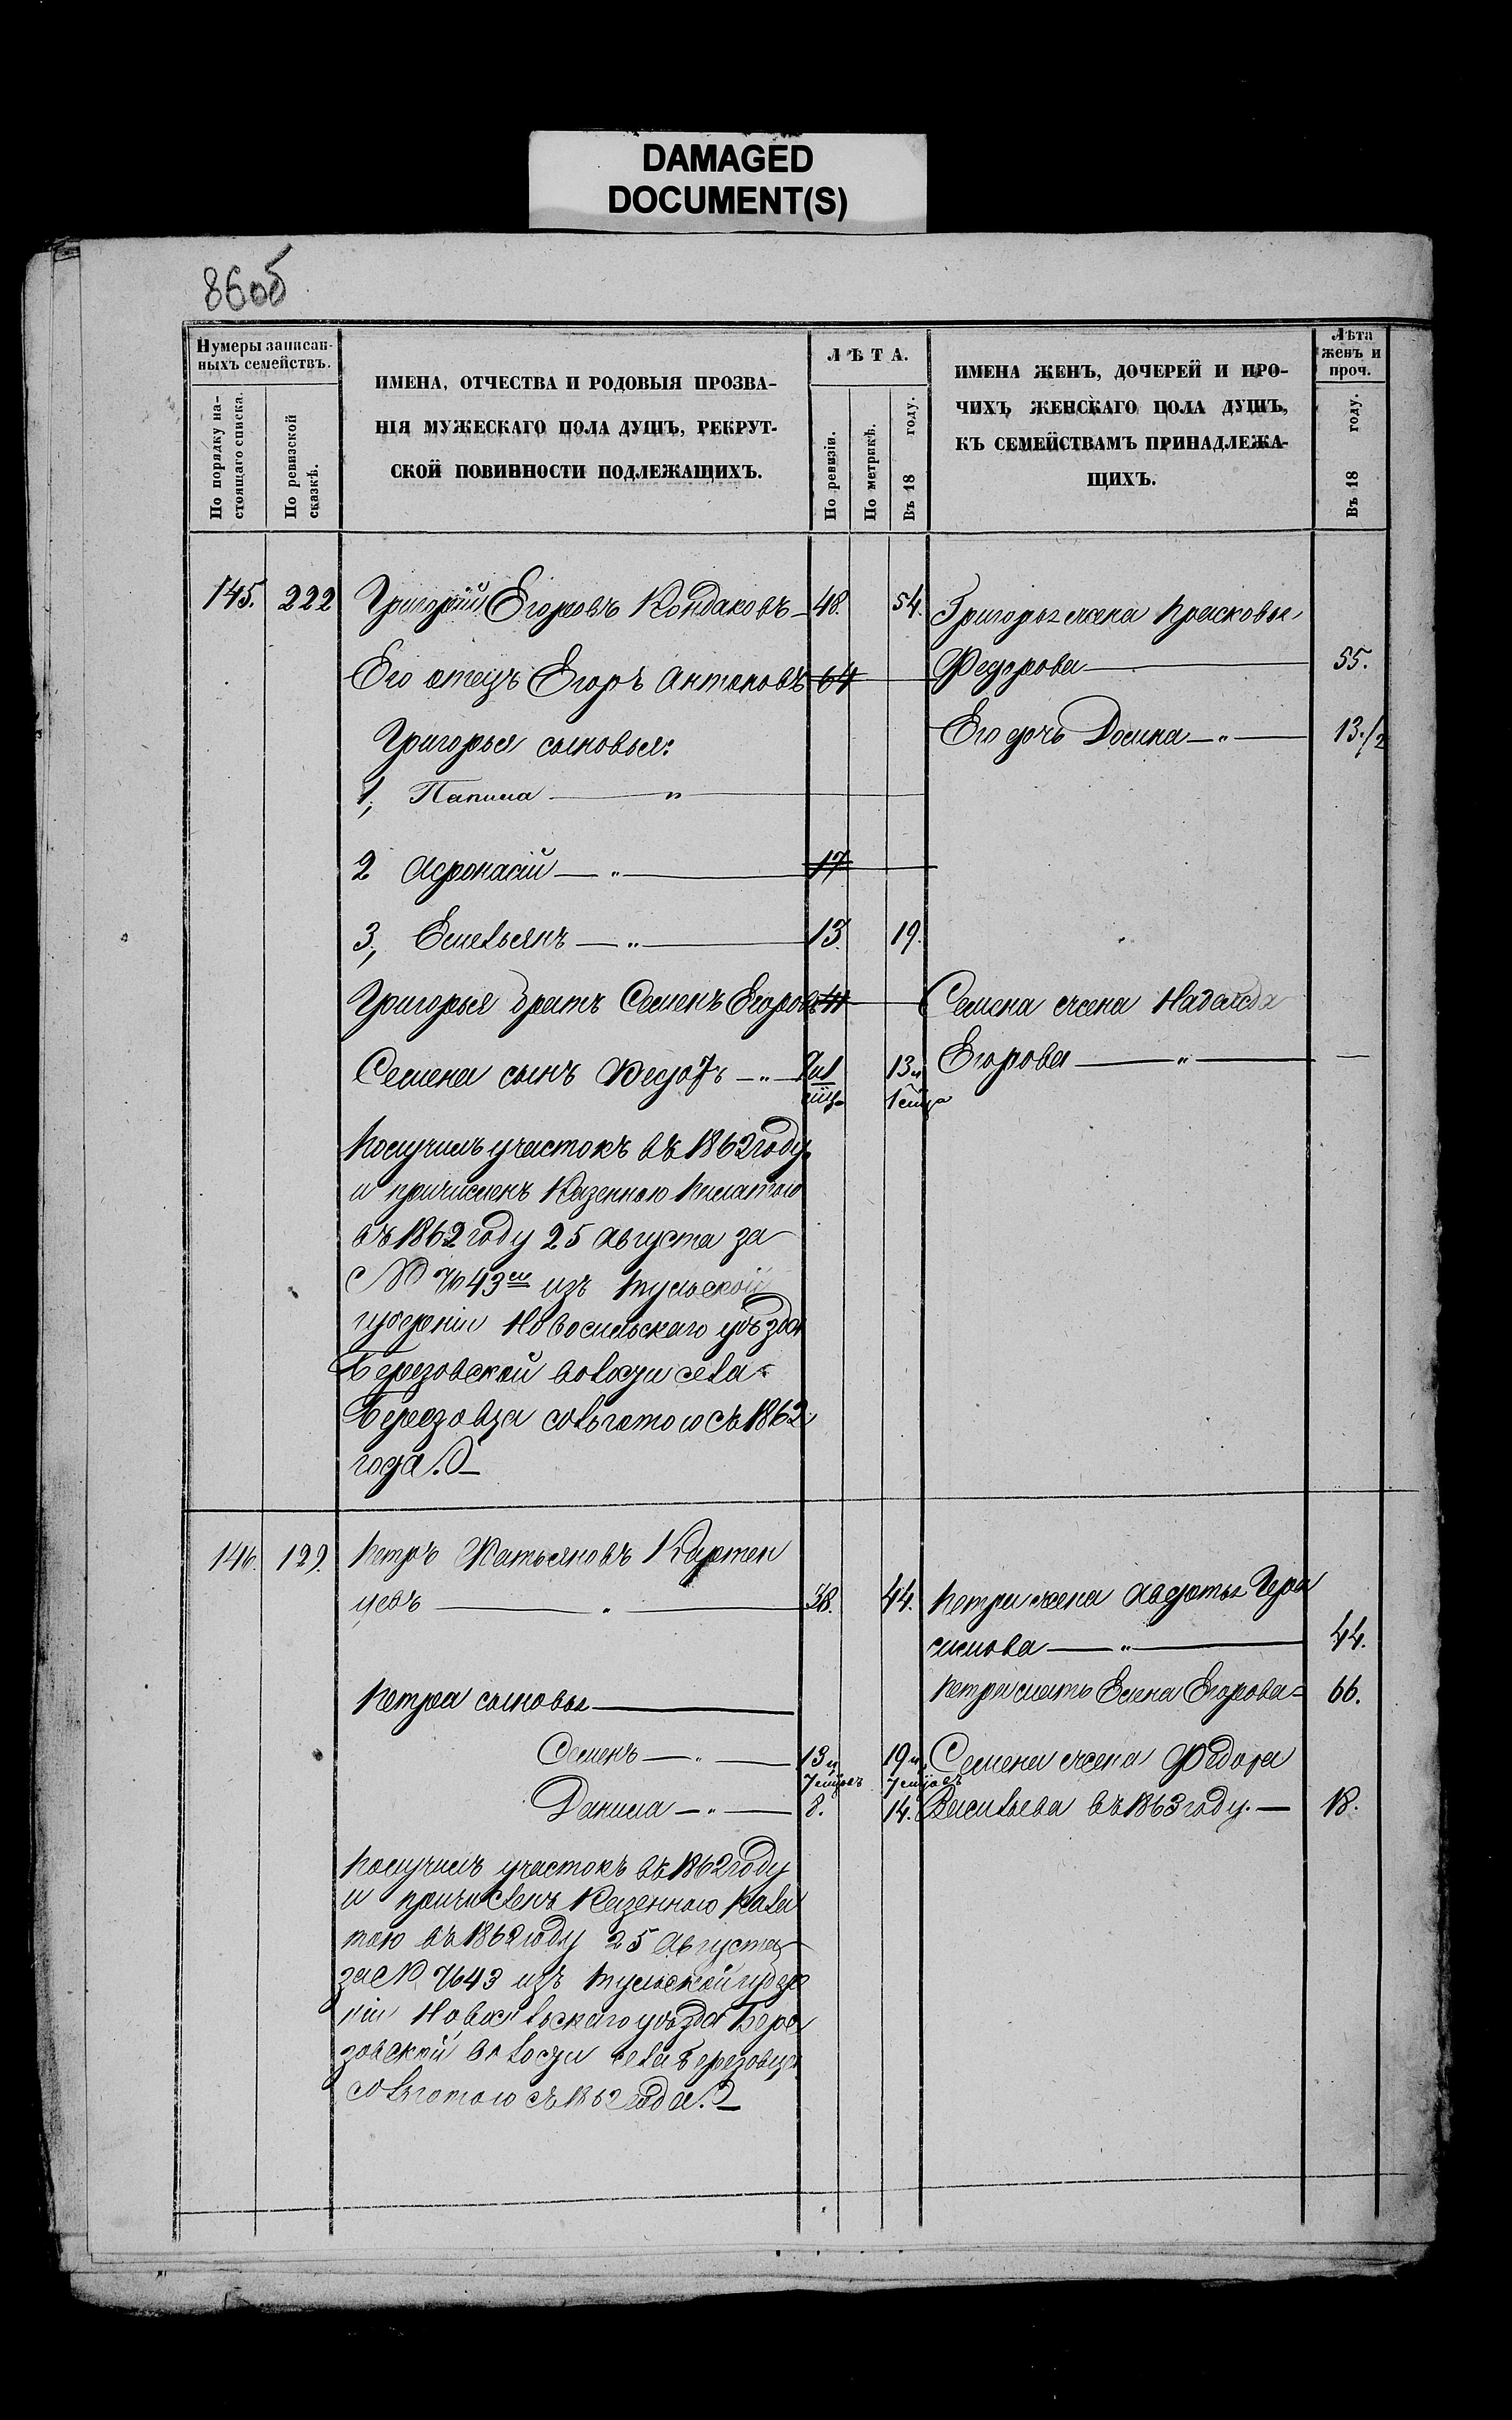 DAMAGED
DOCUMENT(S)
86об
Нумеры записан-
ныхъ семействъ.
По порядку на-
стоящаго списка.
По ревизской
сказкѣ.
ИМЕНА, ОТЧЕСТВА И РОДОВЫЯ ПРОЗВА-
НІЯ МУЖЕСКАГО ПОЛА ДУШЪ, РЕКРУТ-
СКОЙ ПОВИННОСТИ ПОДЛЕЖАЩИХЪ.
ЛѢТА.
По ревизіи.
По метрикѣ.
Въ 18 году.
ИМЕНА ЖЕНЪ, ДОЧЕРЕЙ И ПРО-
ЧИХЪ ЖЕНСКАГО ПОЛА ДУШЪ,
КЪ СЕМЕЙСТВАМЪ ПРИНАДЛЕЖА-
ЩИХЪ.
Лѣта
женъ и
проч.
Въ 18 году.
145. 222 Григорій Егоровъ Кондаковъ 48. 54.
Григорья жена Прасковья
Его отецъ Егоръ Антоновъ 64
Федорова 55.
Григорья сыновья:
Его дочь Домна 13 1/2
1, Папила
2 Афонасій 17
3, Емельянъ 13 19.
Григорья братъ Семенъ Егоровъ 41
Семена жена Надежда
Семена сынъ Федотъ 13 и
1 мца
Егорова —
Получилъ участокъ въ 1862 году
и причисленъ Казенною Палатою
въ 1862 году 25 Августа за
№ 7643м изъ Тульской
губерніи Новосильскаго уѣзда
Березовской волости села
Березовца со льготою съ 1862
года.
146. 129. Петръ Фатьяновъ Картен
цевъ 38. 44.
Петра жена Авдотья Гера
симова 44.
Петра сыновья
Петра мать Елена Егорова 66.
Семенъ 13 и 7 мцовъ 19 и 7 мцовъ
Семена жена Федора
Данила 8. 14.
Васильева въ 1863 году. 18.
Получилъ участокъ въ 1862 году
и причисленъ Казенною Пала
тою въ 1862 году 25 Августа
за № 7643 изъ Тульской губер
ніи Новосильскаго уѣзда Бере
зовской волости села Березовца
со льготою съ 1862 года.